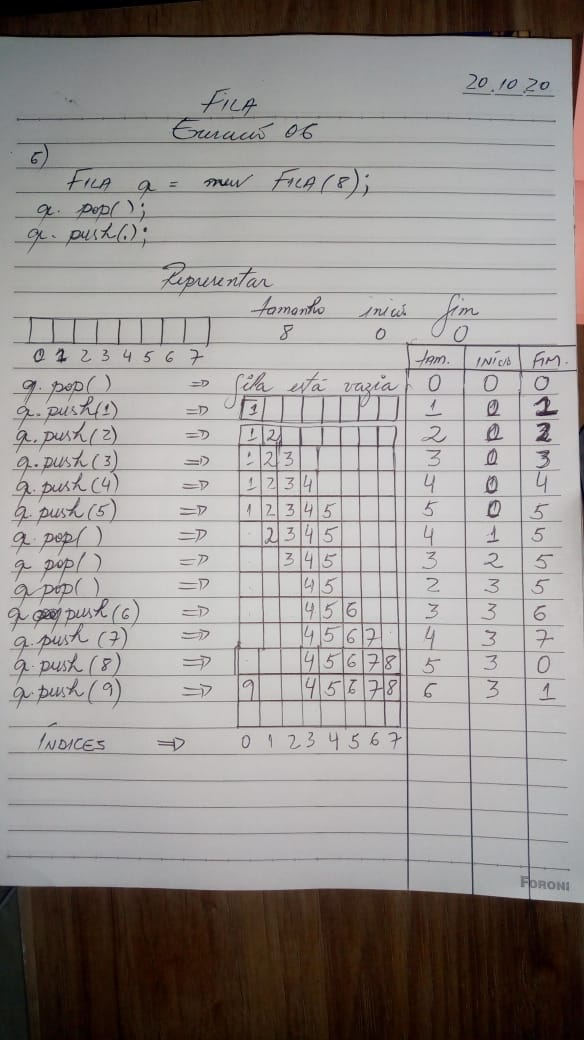 20.10.20
FILA
Exercício 06
6)
FILA q = new FILA(8);
q. pop();
q. push(.);
Representar
tamanho início fim
8 0 0
0 1 2 3 4 5 6 7
TAM. INÍCIO FIM.
q. pop() => fila está vazia 0 0 0
q. push(1) => 1 1 0 1
q. push(2) => 1 2 2 0 2
q. push(3) => 1 2 3 3 0 3
q. push(4) => 1 2 3 4 4 0 4
q. push(5) => 1 2 3 4 5 5 0 5
q. pop() => 2 3 4 5 4 1 5
q pop() => 3 4 5 3 2 5
q pop() => 4 5 2 3 5
q push(6) => 4 5 6 3 3 6
q. push(7) => 4 5 6 7 4 3 7
q. push(8) => 4 5 6 7 8 5 3 0
q. push(9) => 9 4 5 6 7 8 6 3 1
ÍNDICES => 0 1 2 3 4 5 6 7
FORONI